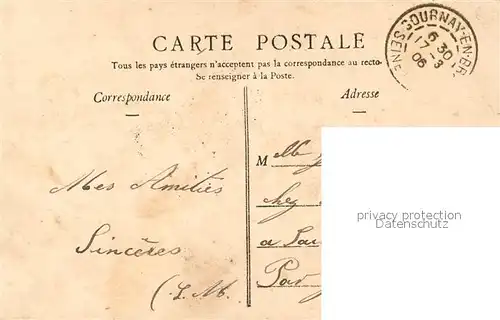 CARTE POSTALE
Tous les pays étrangers n'acceptent pas la correspondance au recto
Se renseigner à la Poste.
Correspondance
Adresse
GOURNAY-EN-BR
6 30
17 -3
06
SEINE
M Mlle
chez
a
Par
Mes Amitiés
Sincères
(J. M.
privacy protection
Datenschutz